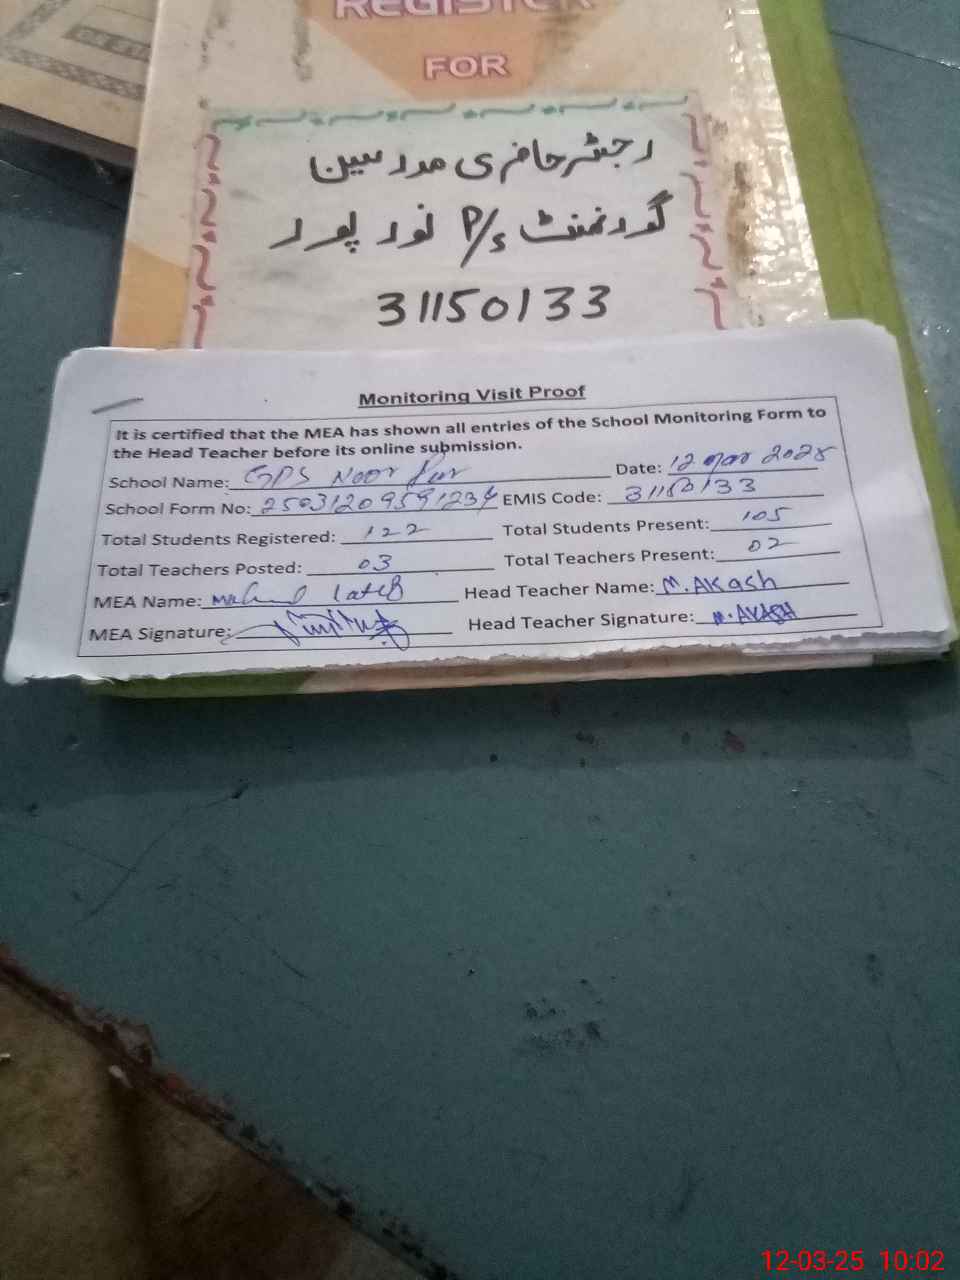 REGISTER
FOR
رجسٹر حاضری مدرسین
گورنمنٹ P/s نور پور
31150133
Monitoring Visit Proof
It is certified that the MEA has shown all entries of the School Monitoring Form to
the Head Teacher before its online submission.
School Name: GPS Noor Pur Date: 12 Mar 2025
School Form No: 25031209591234 EMIS Code: 31150133
Total Students Registered: 122 Total Students Present: 105
Total Teachers Posted: 03 Total Teachers Present: 02
MEA Name: Head Teacher Name: M. Akash
MEA Signature: Head Teacher Signature: M. AKASH
12-03-25 10:02